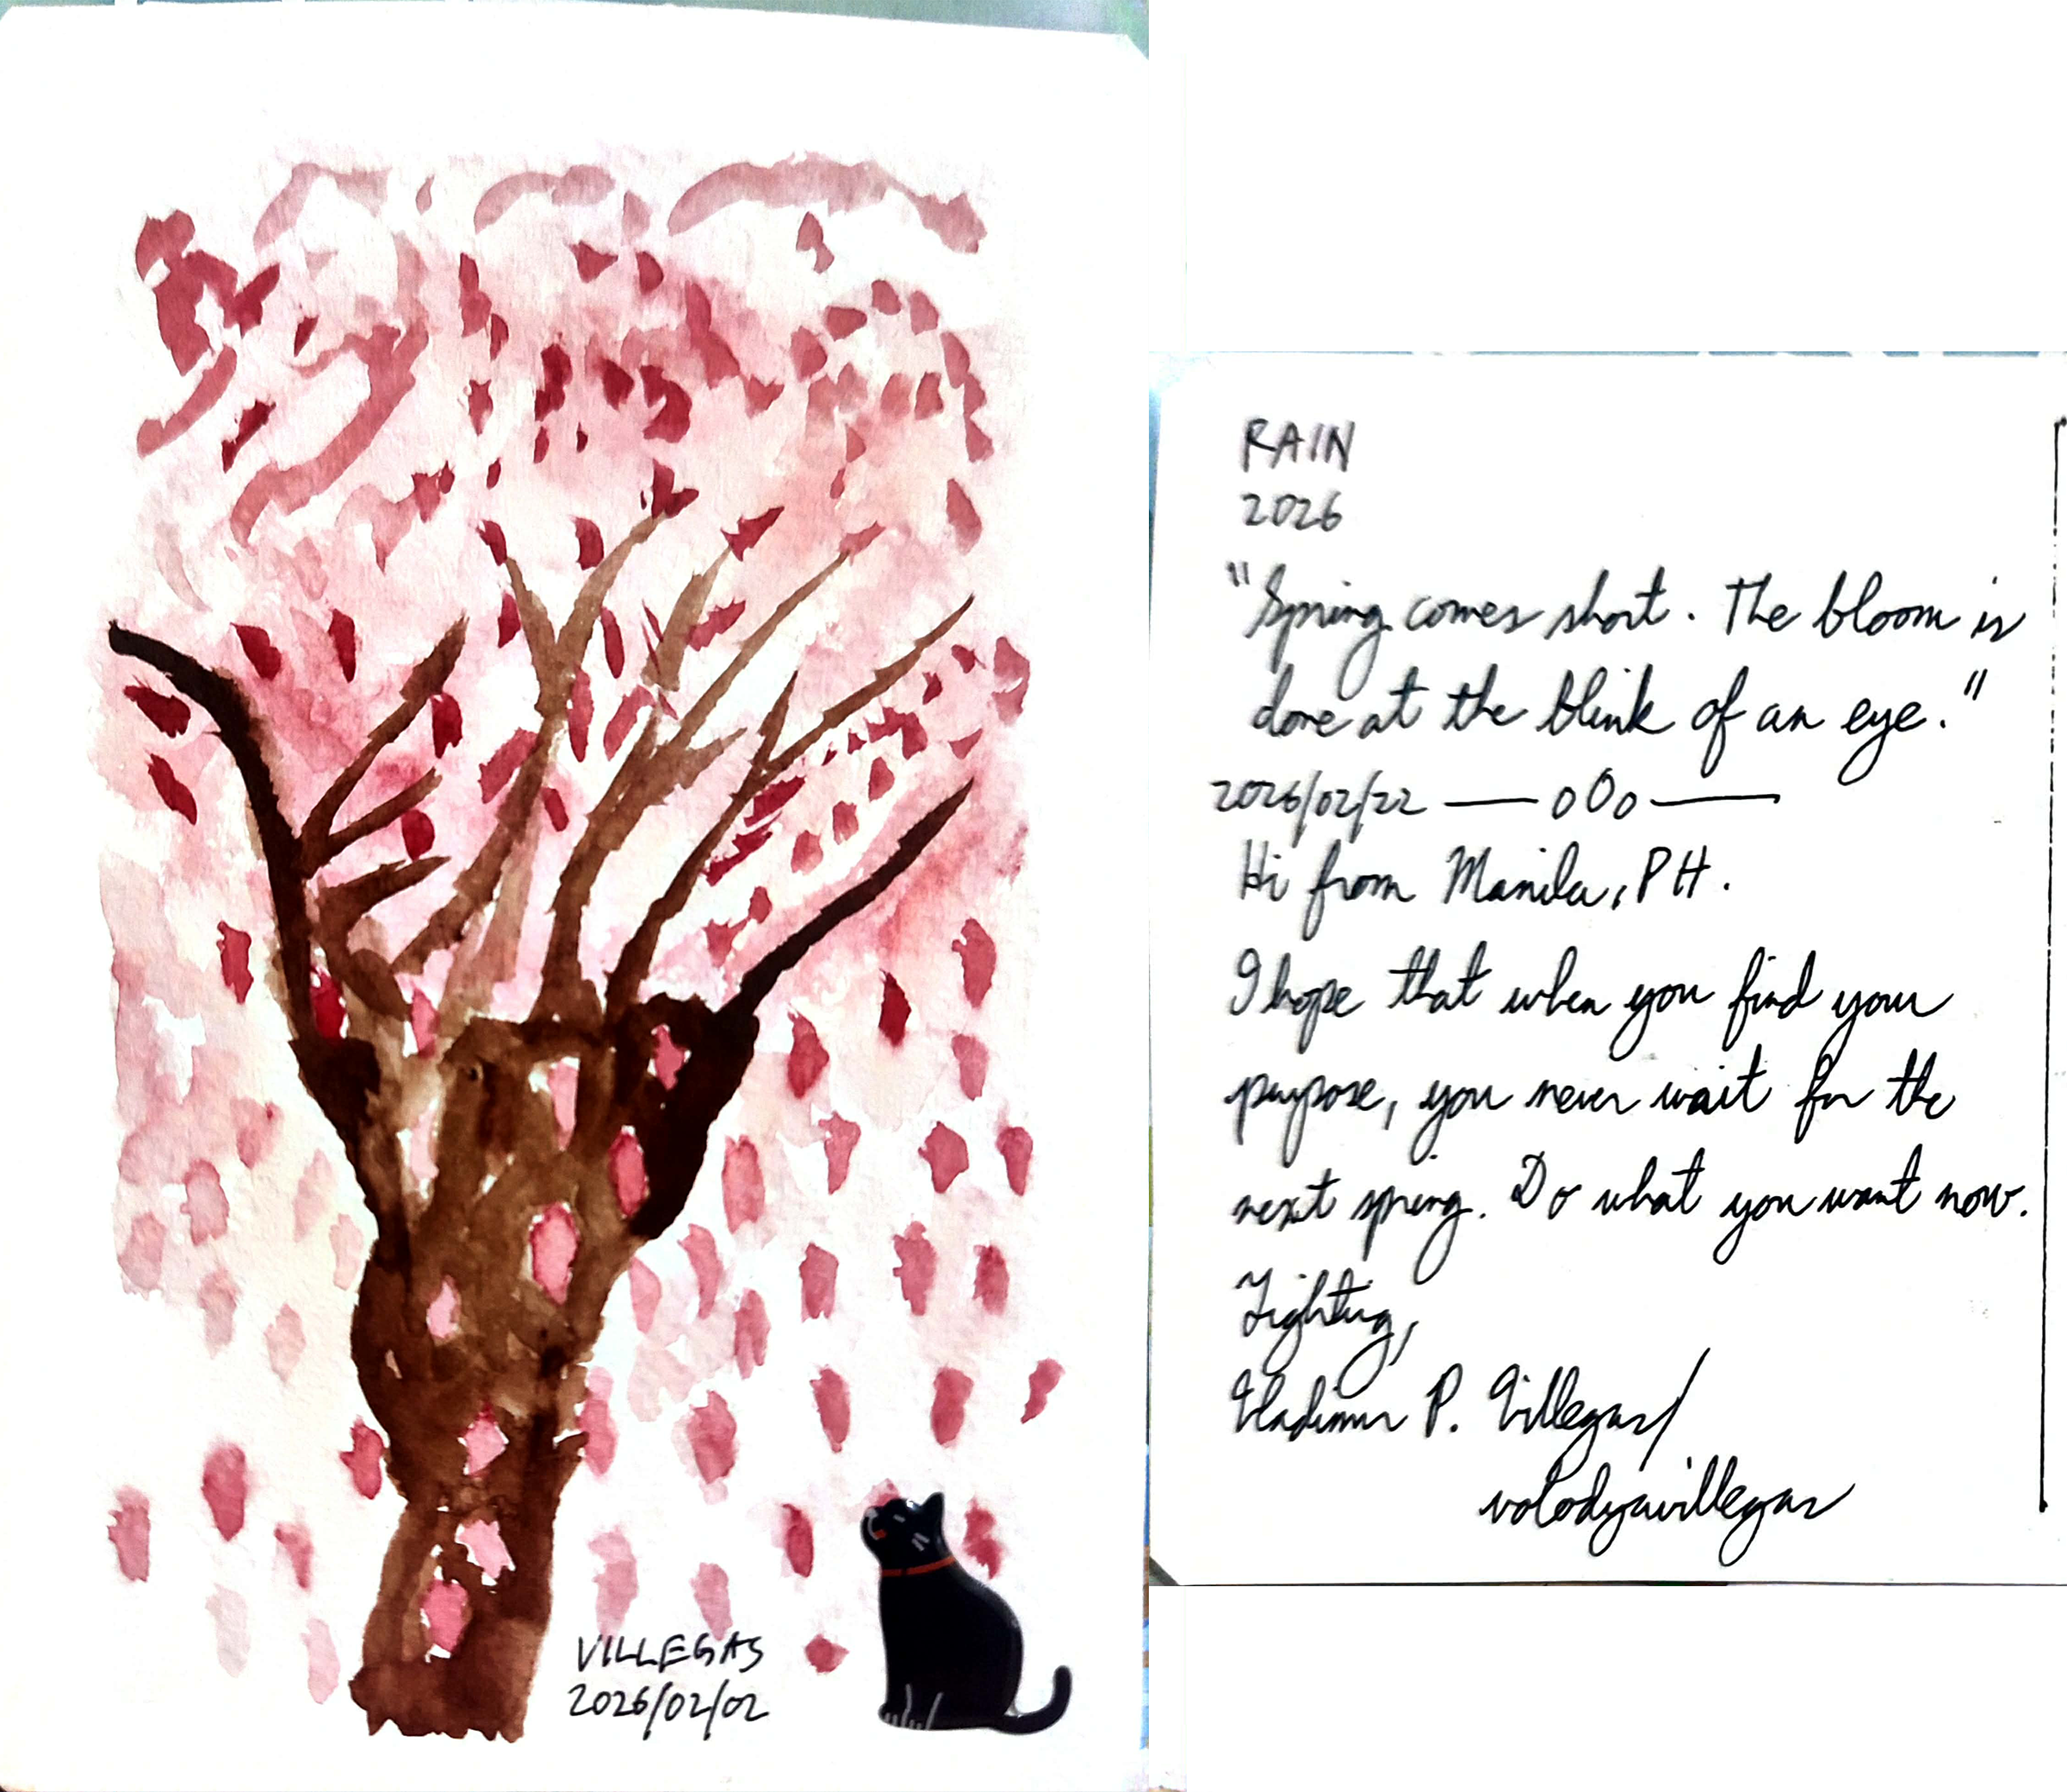 VILLEGAS
2026/02/02
RAIN
2026
"Spring comes short. The bloom is
done at the blink of an eye."
2026/02/22 — oOo —
Hi from Manila, PH.
I hope that when you find your
purpose, you never wait for the
next spring. Do what you want now.
Fighting,
Vladimir P. Villegas/
volodyavillegas